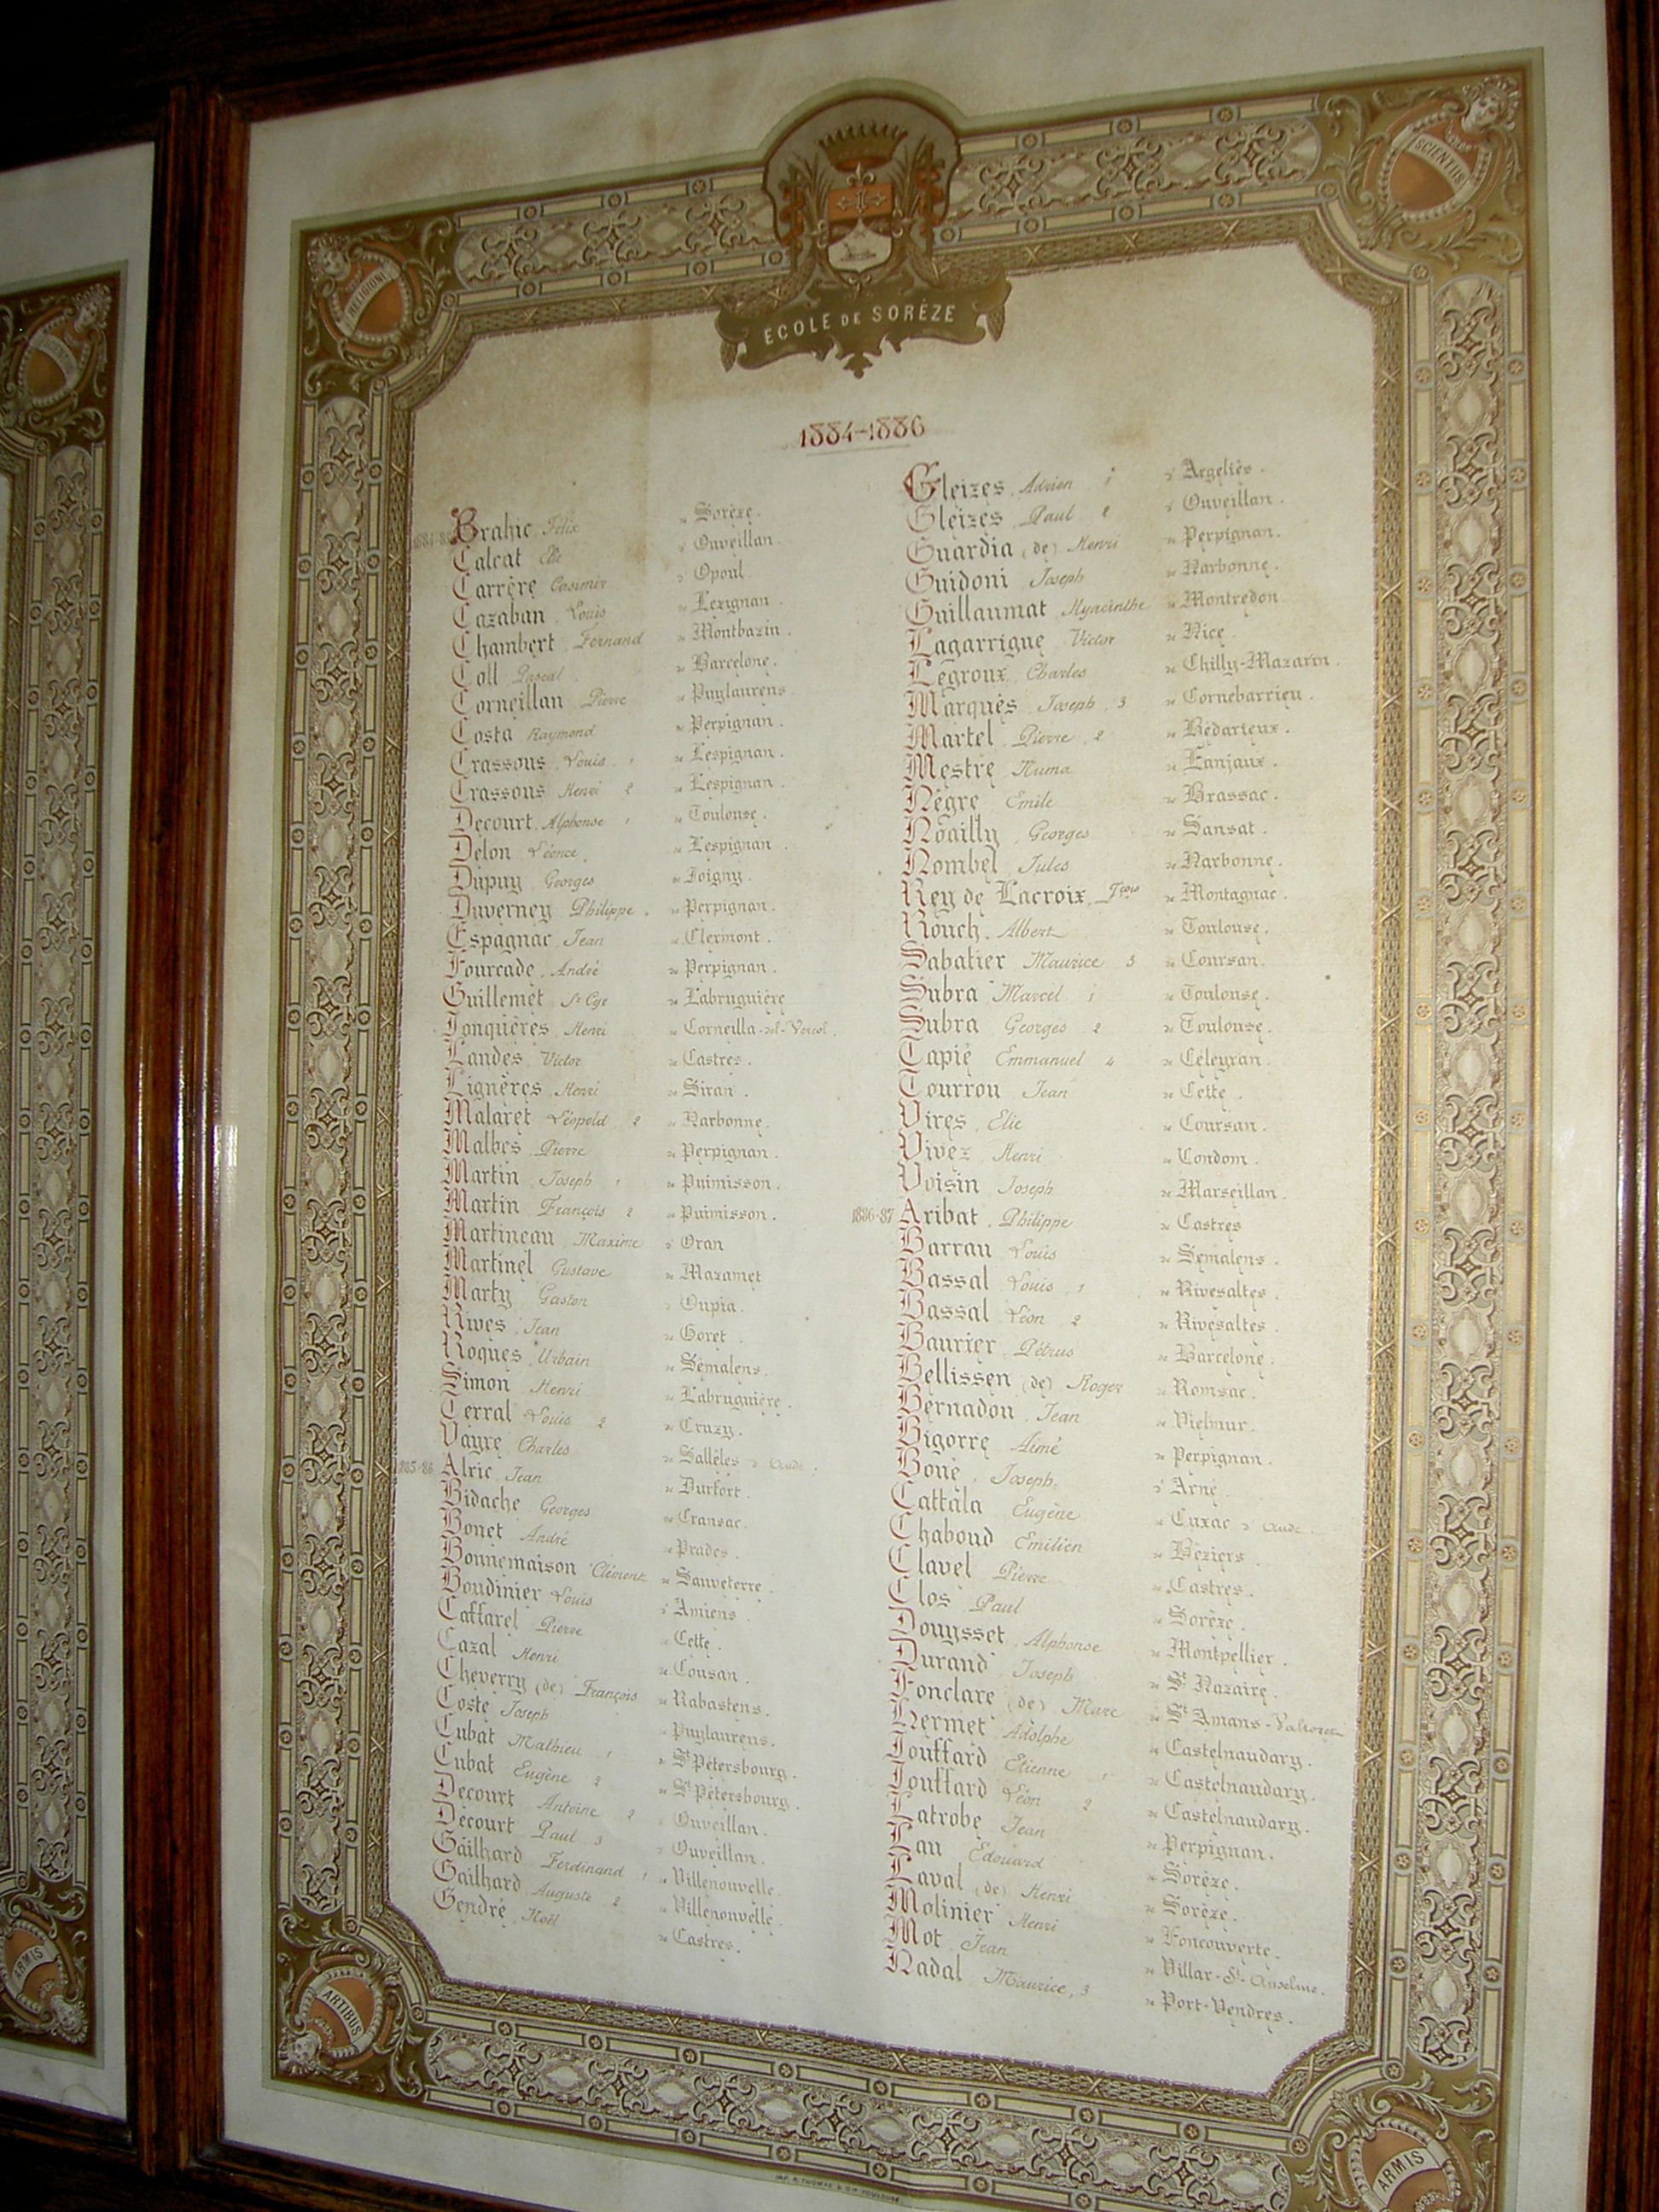 RELIGIONI
SCIENTIIS
ÉCOLE DE SORÈZE
1884-1886
Brahic Félix " Sorèze.
Calcat Elie d' Ouveillan.
Carrère Casimir d' Opoul
Cazaban Louis " Lézignan.
Chambert Fernand " Montbazin.
Coll Pascal " Barcelone.
Corneillan Pierre " Puylaurens
Costa Raymond " Perpignan.
Crassous Louis 1 " Lespignan.
Crassous Henri 2 " Lespignan
Decourt Alphonse 1 " Toulouse.
Delon Léonce " Lespignan
Dupuy Georges " Joigny.
Duverney Philippe " Perpignan.
Espagnac Jean " Clermont.
Fourcade André " Perpignan.
Guillemet St Cyr " Labruguière
Jonquères Henri " Corneilla-del-Vercol.
Landes Victor " Castres.
Lignères Henri " Siran.
Malaret Léopold 2 " Narbonne.
Malbes Pierre " Perpignan.
Martin Joseph 1 " Puimisson.
Martin François 2 " Puimisson.
Martineau Maxime d' Oran
Martinel Gustave " Mazamet
Marty Gaston d' Oupia.
Rives Jean " Goret
Roques Urbain " Sémalens.
Simon Henri " Labruguière.
Terral Louis 2 " Cruzy.
Vayre Charles " Sallèles d'Aude.
1885-86 Alric Jean " Durfort.
Bidache Georges " Cransac.
Bonet André " Prades.
Bonnemaison Clément " Sauveterre.
Boudinier Louis d' Amiens.
Caffarel Pierre " Cette.
Cazal Henri " Cousan.
Cheverry (de) François " Rabastens.
Coste Joseph " Puylaurens.
Cubat Mathieu 1 " St Pétersbourg.
Cubat Eugène 2 " St Pétersbourg.
Decourt Antoine 2 d' Ouveillan.
Decourt Paul 3 d' Ouveillan.
Gailhard Ferdinand 1 " Villenouvelle.
Gailhard Auguste 2 " Villenouvelle.
Gendre Noël " Castres.
Gleizes Adrien 1 d' Argeliès.
Gleizes Paul 2 d' Ouveillan.
Guardia (de) Henri " Perpignan.
Guidoni Joseph " Narbonne.
Guillaumat Hyacinthe " Montredon
Lagarrigue Victor " Nice.
Legroux Charles " Chilly-Mazarin.
Marquès Joseph 3 " Cornebarrieu.
Martel Pierre 2 " Bédarieux.
Mestre Numa " Lanjaux.
Nègre Emile " Brassac.
Noailly Georges " Sansat.
Nombel Jules " Narbonne.
Rey de Lacroix Fçois " Montagnac.
Rouch Albert " Toulouse.
Sabatier Maurice 3 " Coursan.
Subra Marcel 1 " Toulouse.
Subra Georges 2 " Toulouse.
Tapié Emmanuel 4 " Céleyran.
Tourrou Jean " Cette.
Vires Elie " Coursan.
Vivez Henri " Condom.
Voisin Joseph " Marseillan.
1886-87 Aribat Philippe " Castres
Barrau Louis " Sémalens.
Bassal Louis 1 " Rivesaltes.
Bassal Léon 2 " Rivesaltes.
Baurier Pétrus " Barcelone.
Bellissen (de) Roger " Romsac.
Bernadou Jean " Vielmur.
Bigorre Aimé " Perpignan.
Boué Joseph. d' Arné.
Cattala Eugène " Cuxac d'Aude.
Chaboud Emilien " Béziers.
Clavel Pierre " Castres.
Clos Paul " Sorèze.
Douysset Alphonse " Montpellier.
Durand Joseph " St Nazaire.
Fonclare (de) Marc " St Amans-Valtoret
Hermet Adolphe " Castelnaudary.
Jouffard Etienne 1 " Castelnaudary.
Jouffard Léon 2 " Castelnaudary.
Latrobe Jean " Perpignan.
Lau Edouard " Sorèze.
Laval (de) Henri " Sorèze.
Molinier Henri " Foncouverte.
Mot Jean " Villar-St-Anselme.
Nadal Maurice, 3 " Port-Vendres.
ARTIBUS
ARMIS
ARMIS